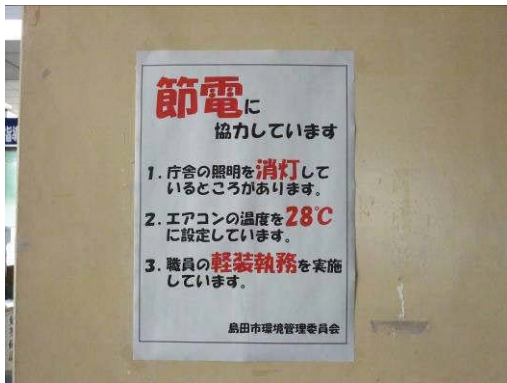 節電に
協力しています
1. 庁舎の照明を消灯して
いるところがあります。
2. エアコンの温度を28℃
に設定しています。
3. 職員の軽装執務を実施
しています。
島田市環境管理委員会